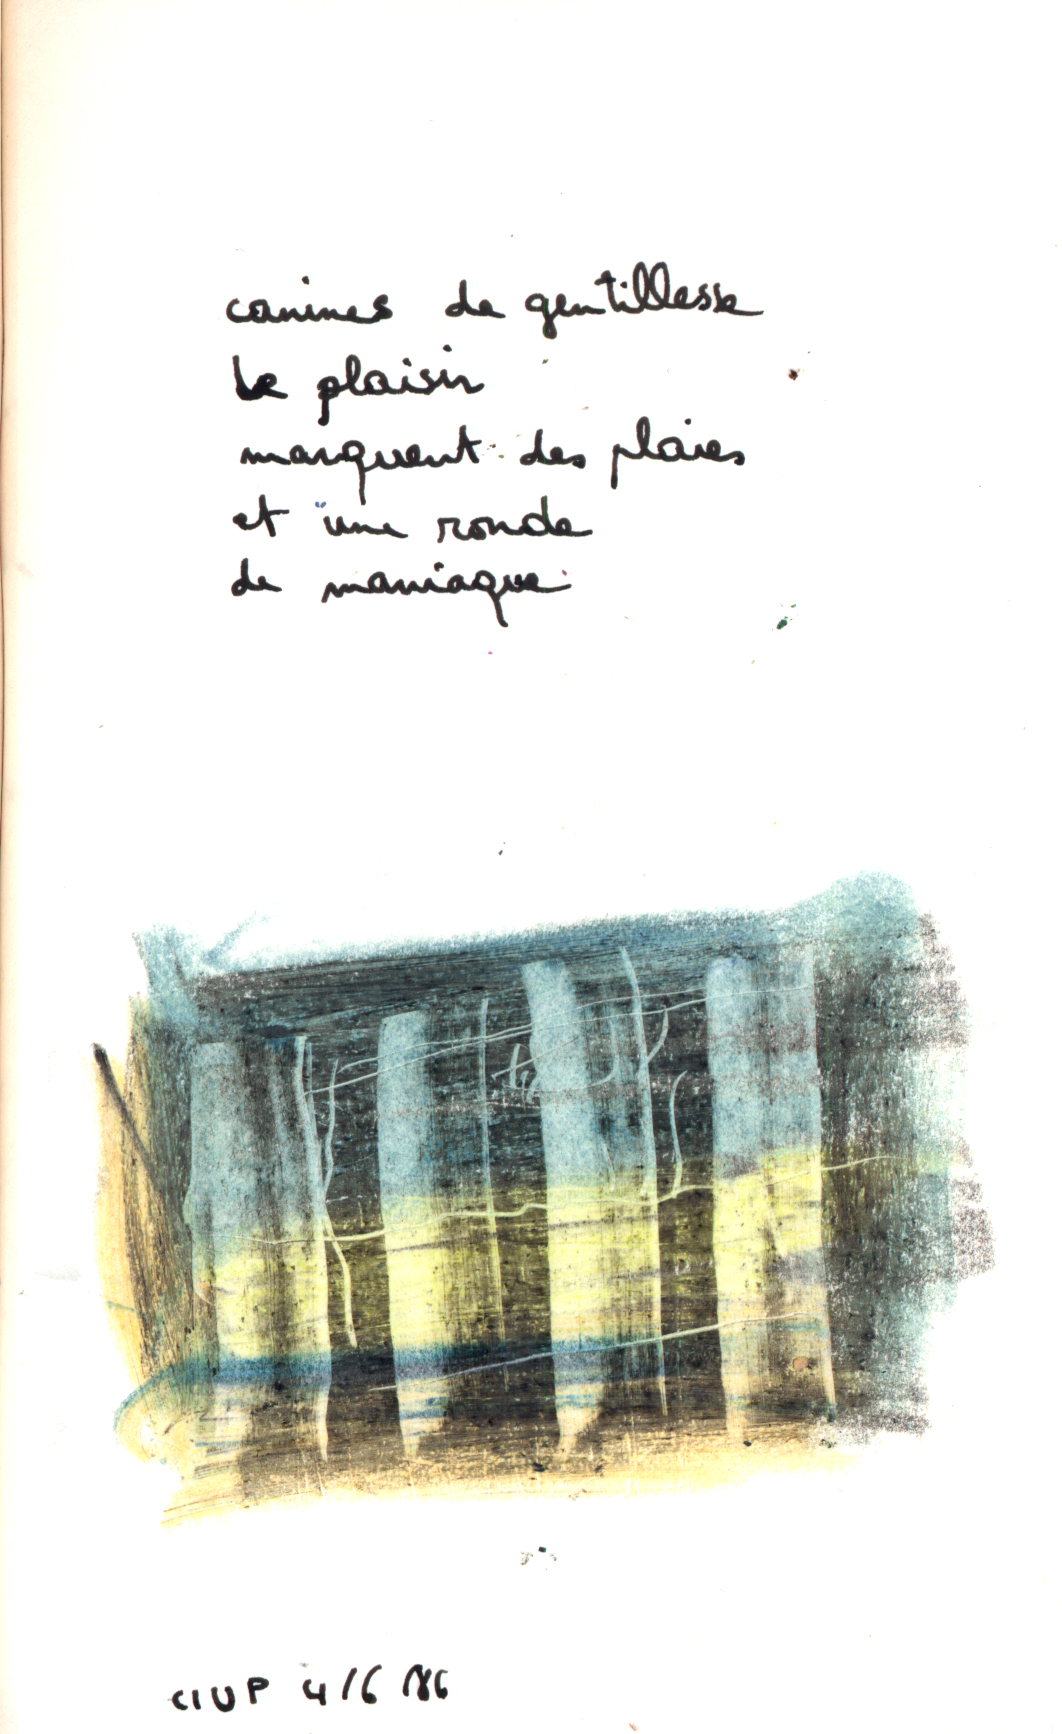 canines de gentillesse
le plaisir
marquent des plaies
et une ronde
de maniaque
CIUP 4/6/86